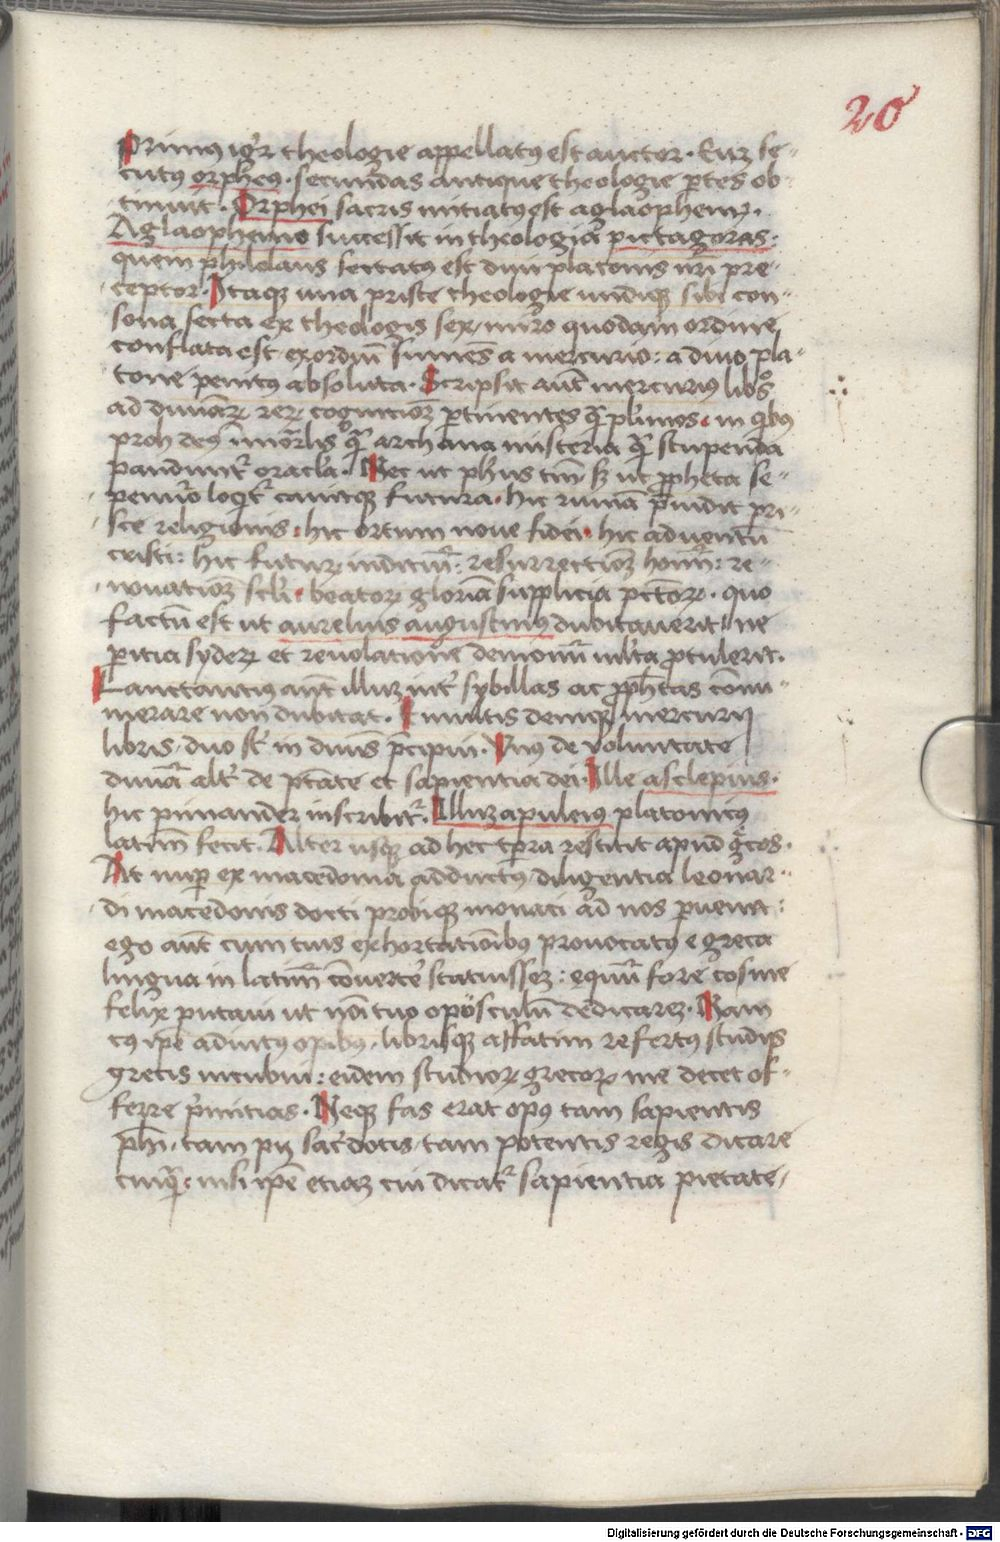 20
Primus igr̃ theologie appellatus est auctor. Eum se-
cutus orpheus. secundas antique theologie ptes ob-
tinuit. Orphei sacris initiatus est aglaophemꝯ.
Aglaophemo successit in theologia pictagoras.
quem philolaus sectatus est diui platonis nr̃i pre-
ceptor. Itaqꝫ una prisce theologie undiqꝫ sibi con-
sona secta ex theologis sex, miro quodam ordine
conflata est. exordiũ sumẽs a mercurio: a diuo pla-
tone penitus absoluta. Scripsit aũt mercurius libͦs
ad diuinarꝝ rerꝝ cognitionẽ ptinentes q̃ plimos. in qibus
proh deus imortalis qᷓ archana misteria qᷓ stupenda
pandunt̃ oracla. Nec ut phus tm̃ sꝫ ut propheta se-
penuo loqit̃ canitqꝫ futura. hic ruinã puidit pri-
sce religionis. hic ortum noue fidei. hic aduentũ
cristi: hic futurꝝ iudiciũ: resurrectionẽ hoinũ: re-
nouationẽ scli. beatorꝝ gloriã supplicia pctorꝝ. quo
factũ est ut aurelius augustinus dubitauerit ne
pitia syderꝝ et reuolatione demonuͫ multa ptulerit.
Lanctantius aũt illum int̃ sybillas ac pphetas cõnu-
merare non dubitat. E multis deniqꝫ mercurij
libris, duo st̃ in diuis p̃cipui. Unus de voluntate
diuina alt̃ de ptãte et sapientia dei. Ille asclepius.
hic pimander inscribit̃. Illum apuleius platonicus
latinũ fecit. Alter usqꝫ ad hec tpra restitit apud grecos.
At nup ex macedonia adductus diligentia leonar-
di macedonis docti probiqꝫ monaci ad nos puenit:
ego aũt cum tuis exhortationibus provocatus e greca
lingua in latinã conuert̃e statuissem: equũ fore cosme
felix putaui ut noĩ tuo opusculũ dedicarem. Nam
cus ipe adiutus opibus, librisqꝫ affatim refertus studijs
grecis incubui: eidem studiorꝝ grecorꝝ me decet of-
ferre p̃mitias. Neqꝫ fas erat opus tam sapientis
phi, tam pij sacdotis, tam potentis regis dicare
cuiqᷓ, nisi ipe etiam cui dicat̃ sapientia pietate,
Digitalisierung gefördert durch die Deutsche Forschungsgemeinschaft - DFG